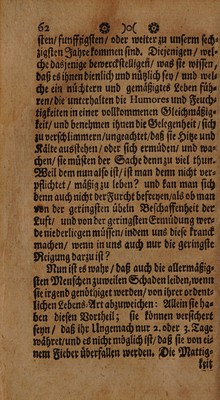 62
sten/ funffzigsten/ oder weiter zu unserm sech-
zigsten Jahre kommen sind. Diejenigen/ wel-
che dasjenige bewerckstelligen/ was sie wissen,
daß es ihnen dienlich und nützlich sey/ und wel-
che ein nüchtern und gemäßigtes Leben füh-
ren/ die unterhalten die Humores und Feuch-
tigkeiten in einer vollkommenen Gleichmäßig-
keit/ und benehmen ihnen die Gelegenheit/ sich
zu verschlimmern/ ungeachtet/ daß sie Hitz und
Kälte ausstehen/ oder sich ermüden/ und wa-
chen/ sie müsten der Sache denn zu viel thun.
Weil dem nun also ist/ ist man denn nicht ver-
pflichtet/ mäßig zu leben? und kan man sich
denn auch nicht der Furcht befreyen/ als ob man
von der geringsten übeln Beschaffenheit der
Lufft/ und von der geringsten Ermüdung wer-
de niederliegen müssen/ indem uns diese kranck
machen/ wenn in uns auch nur die geringste
Reigung darzu ist?
Nun ist es wahr/ daß auch die allermäßig-
sten Menschen zuweilen Schaden leiden, wenn
sie irgend genöthiget werden/ von ihrer ordent-
lichen Lebens-Art abzuweichen: Allein sie ha-
ben diesen Vortheil; sie können versichert
seyn/ daß ihr Ungemach nur 2. oder 3. Tage
währet/ und es nicht möglich ist/ daß sie von ei-
nem Fieber überfallen werden. Die Mattig-
keit